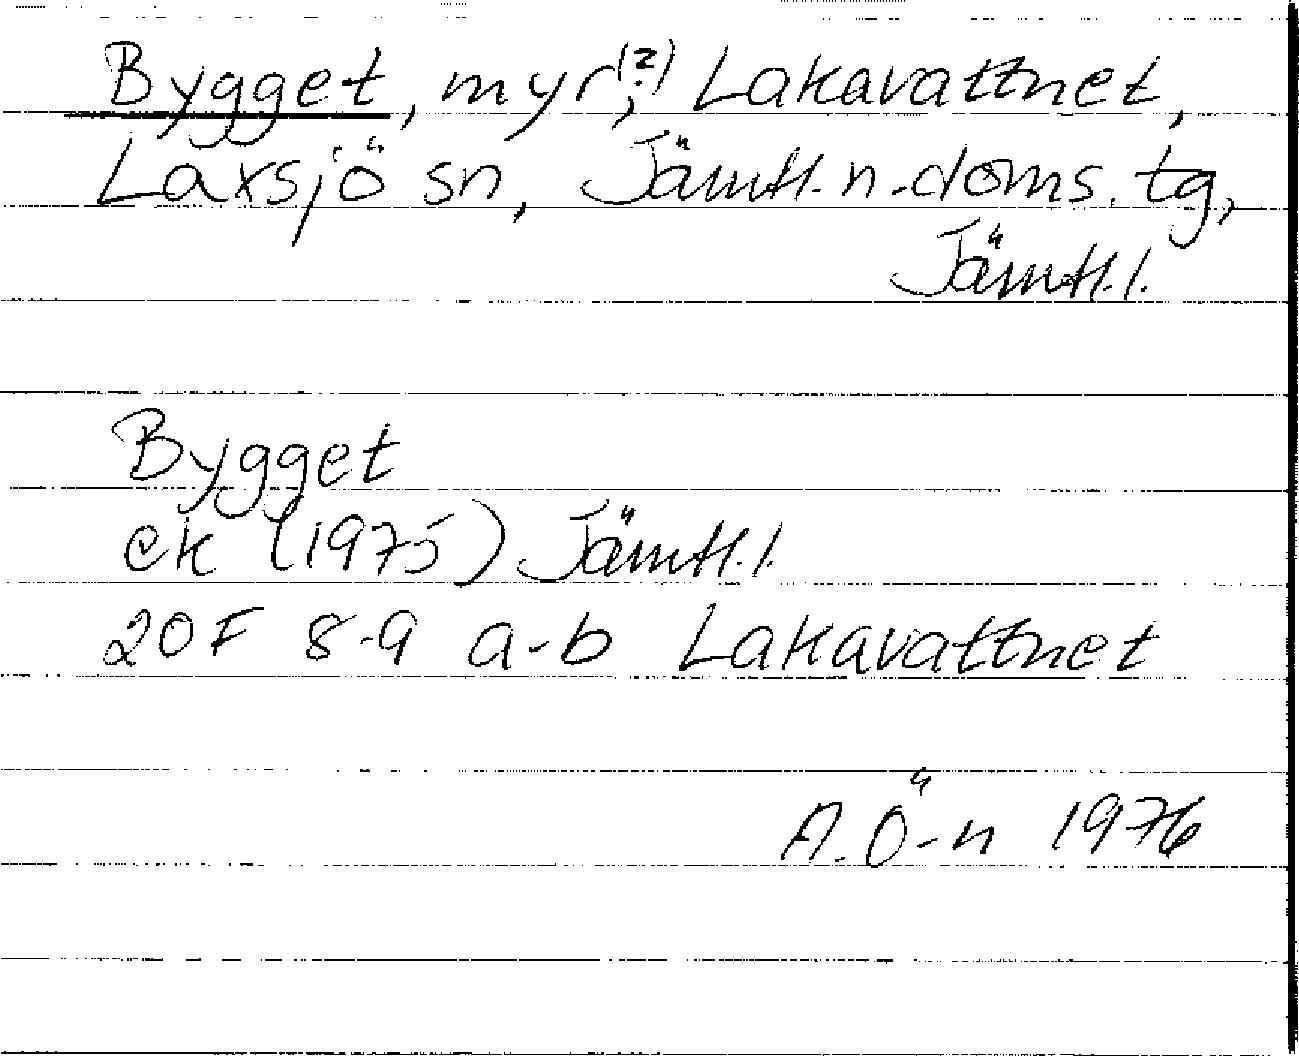 Bygget, myr(?), Lakavattnet,
Laxsjö sn, Jämtl. n. doms. tg,
Jämtl.l.
Bygget
ek (1975) Jämtl.l.
20F 8-9 a-b Lakavattnet
A. Ö-n 1976